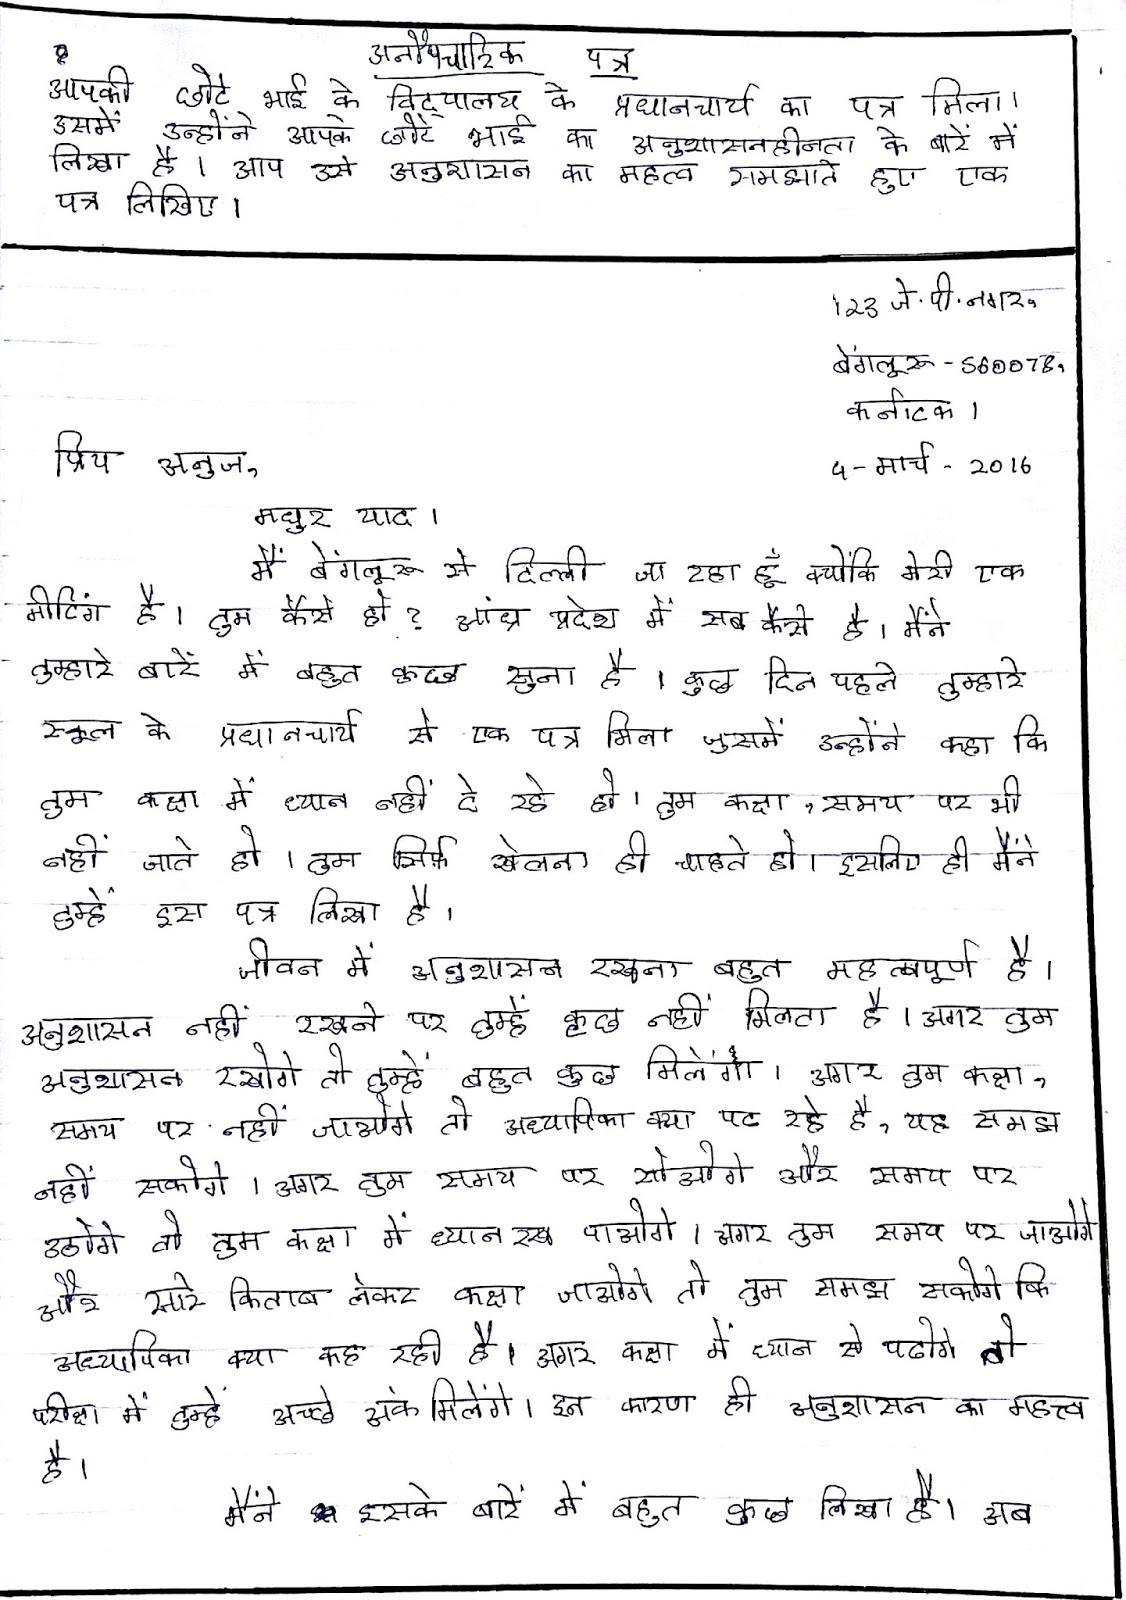 अनौपचारिक पत्र
आपकी छोटे भाई के विद्यालय के प्रधानचार्य का पत्र मिला।
उसमें उन्होंने आपके छोटे भाई का अनुशासनहीनता के बारें में
लिखा है। आप उसे अनुशासन का महत्व समझाते हुए एक
पत्र लिखिए।
123 जे.पी.नगर,
बेंगलूरू - 560078,
कर्नाटक।
प्रिय अनुज,
4 - मार्च - 2016
मधुर याद।
मैं बेंगलूरू से दिल्ली जा रहा हूँ क्योंकि मेरी एक
मीटिंग है। तुम कैसे हो? आंध्र प्रदेश में सब कैसे है। मैंने
तुम्हारे बारें में बहुत कुछ सुना है। कुछ दिन पहले तुम्हारे
स्कूल के प्रधानचार्य से एक पत्र मिला जुसमें उन्होंने कहा कि
तुम कक्षा में ध्यान नहीं दे रहे हो। तुम कक्षा, समय पर भी
नहीं जाते हो। तुम सिर्फ़ खेलना ही चाहते हो। इसलिए ही मैंने
तुम्हें इस पत्र लिखा है।
जीवन में अनुशासन रखना बहुत महत्वपूर्ण है।
अनुशासन नहीं रखने पर तुम्हें कुछ नहीं मिलता है। अगर तुम
अनुशासन रखोगे तो तुम्हें बहुत कुछ मिलेंगी। अगर तुम कक्षा,
समय पर नहीं जाओगे तो अध्यापिका क्या पढ रहे है, यह समझ
नहीं सकोगे। अगर तुम समय पर सोओगे और समय पर
उठोगे तो तुम कक्षा में ध्यान रख पाओगे। अगर तुम समय पर जाओगे
और सारे किताब लेकर कक्षा जाओगे तो तुम समझ सकोगे कि
अध्यापिका क्या कह रही है। अगर कक्षा में ध्यान से पढोगे तो
परीक्षा में तुम्हें अच्छे अंक मिलेंगे। इन कारण ही अनुशासन का महत्त्व
है।
मैंने इसके बारें में बहुत कुछ लिखा है। अब